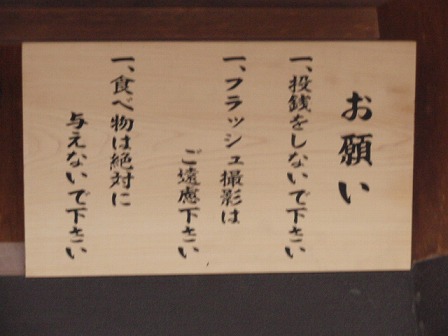 お願い
一、投銭をしないで下さい
一、フラッシュ撮影は
ご遠慮下さい
一、食べ物は絶対に
与えないで下さい